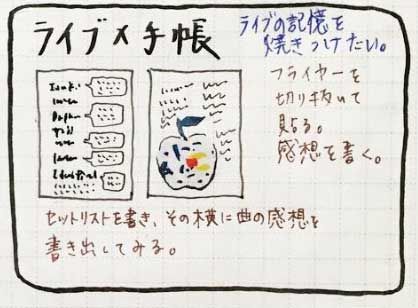 ライブ×手帳
ライブの記憶を
焼きつけたい。
フライヤーを
切り抜いて
貼る。
感想を書く。
セットリストを書き、その横に曲の感想を
書き出してみる。